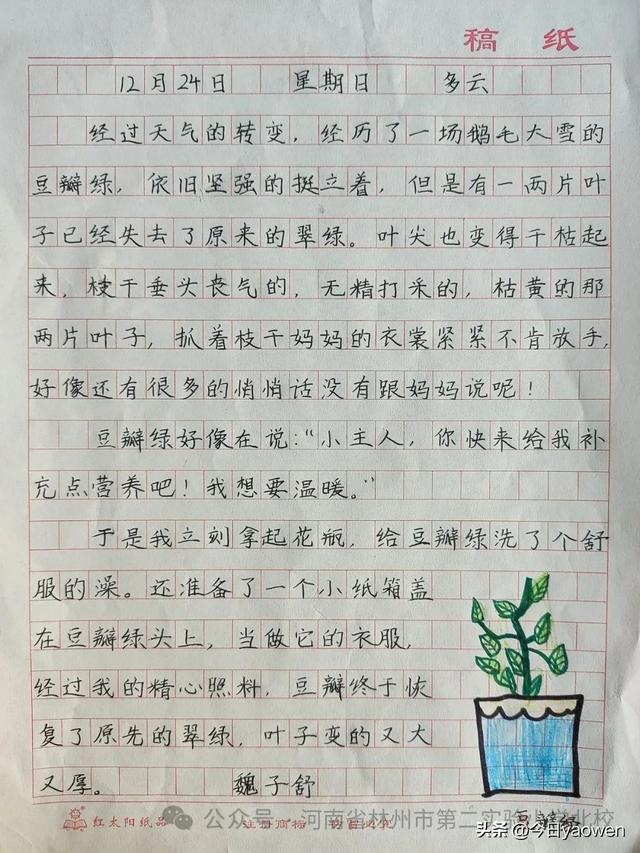 稿 纸
12月24日 星期日 多云
经过天气的转变，经历了一场鹅毛大雪的
豆瓣绿，依旧坚强的挺立着，但是有一两片叶
子已经失去了原来的翠绿。叶尖也变得干枯起
来，枝干垂头丧气的，无精打采的，枯黄的那
两片叶子，抓着枝干妈妈的衣裳紧紧不肯放手，
好像还有很多的悄悄话没有跟妈妈说呢！
豆瓣绿好像在说：“小主人，你快来给我补
充点营养吧！我想要温暖。”
于是我立刻拿起花瓶，给豆瓣绿洗了个舒
服的澡。还准备了一个小纸箱盖
在豆瓣绿头上，当做它的衣服，
经过我的精心照料，豆瓣终于恢
复了原先的翠绿，叶子变的又大
又厚。 魏子舒
红太阳纸品 注册商标
公众号 河南省林州市第二实验小学北校
头条 @今日yaowen